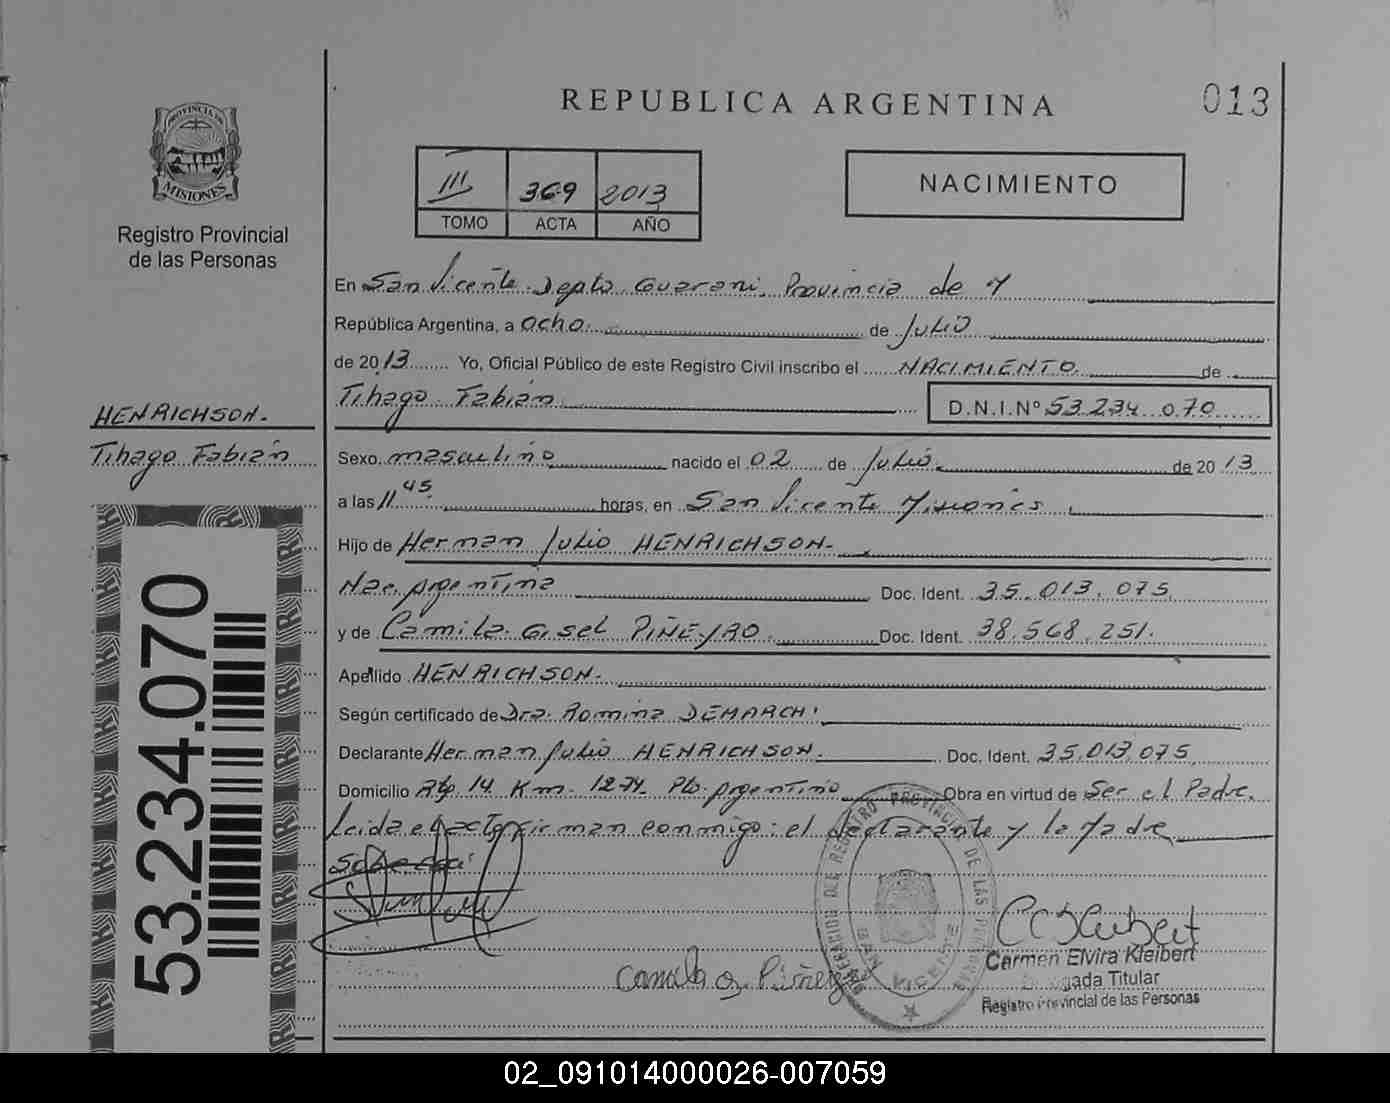 REPUBLICA ARGENTINA
013
PROVINCIA DE
MISIONES
Registro Provincial
de las Personas
III 369 2013
TOMO ACTA AÑO
NACIMIENTO
En San Vicente Depto Guarani, Provincia de M
República Argentina, a ocho de Julio
de 2013 Yo, Oficial Público de este Registro Civil inscribo el NACIMIENTO de
Tihago Fabián D.N.I.Nº 53 234 070
HENRICHSON.
Tihago Fabián
Sexo masculino nacido el 02 de Julio de 2013
a las 11 45 horas, en San Vicente Misiones
Hijo de Herman Julio HENRICHSON.
Nac. Argentina Doc. Ident. 35.013.075
y de Camila Gisel PIÑEYRO Doc. Ident. 38.568.251.
Apellido HENRICHSON.
Según certificado de Dra. Romina DEMARCHI
Declarante Herman Julio HENRICHSON. Doc. Ident. 35.013.075
Domicilio Km. 1274 Pto. Argentino Obra en virtud de Ser el Padre
Leida el acta firman conmigo: el declarante y la Madre
53.234.070
Camila G. Piñeyro
SAN VICENTE
Carmen Elvira Kleibert
Titular
Registro Provincial de las Personas
02_091014000026-007059